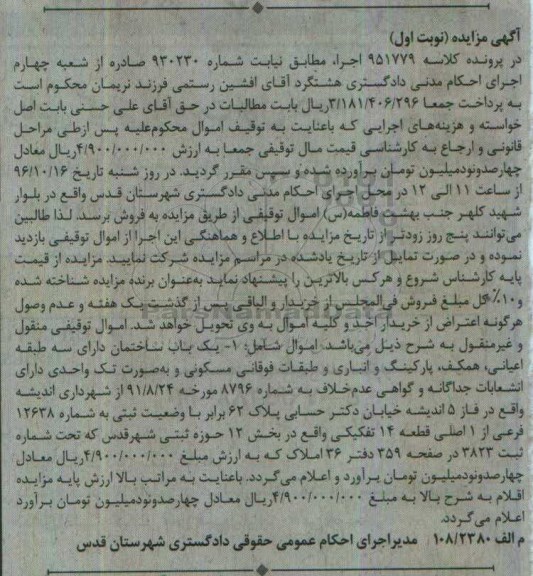 آگهی مزایده (نوبت اول)
در پرونده کلاسه ۹۵۱۷۷۹ اجرا، مطابق نیابت شماره ۹۳۰۲۳۰ صادره از شعبه چهارم
اجرای احکام مدنی دادگستری هشتگرد آقای افشین رستمی فرزند نریمان محکوم است
به پرداخت جمعا ۳/۱۸۱/۴۰۶/۲۹۶ریال بابت مطالبات در حق آقای علی حسنی بابت اصل
خواسته و هزینه‌های اجرایی که باعنایت به توقیف اموال محکوم‌علیه پس ازطی مراحل
قانونی و ارجاع به کارشناسی قیمت مال توقیفی جمعا به ارزش ۴/۹۰۰/۰۰۰/۰۰۰ریال معادل
چهارصدونودمیلیون تومان برآورده شده و سپس مقرر گردید. در روز شنبه تاریخ ۹۶/۱۰/۱۶
از ساعت ۱۱ الی ۱۲ در محل اجرای احکام مدنی دادگستری شهرستان قدس واقع در بلوار
شهید کلهر جنب بهشت فاطمه(س) اموال توقیفی از طریق مزایده به فروش برسد. لذا طالبین
می‌توانند پنج روز زودتر از تاریخ مزایده با اطلاع و هماهنگی این اجرا از اموال توقیفی بازدید
نموده و در صورت تمایل از تاریخ یادشده در مراسم مزایده شرکت نمایید. مزایده از قیمت
پایه کارشناس شروع و هرکس بالاترین را پیشنهاد نماید به‌عنوان برنده مزایده شناخته شده
و۱۰٪ کل مبلغ فروش فی‌المجلس از خریدار و الباقی پس از گذشت یک هفته و عدم وصول
هرگونه اعتراض از خریدار اخذ و کلیه اموال به وی تحویل خواهد شد. اموال توقیفی منقول
و غیرمنقول به شرح ذیل می‌باشد. اموال شامل: ۱- یک باب ساختمان دارای سه طبقه
اعیانی، همکف، پارکینگ و انباری و طبقات فوقانی مسکونی و به‌صورت تک واحدی دارای
انشعابات جداگانه و گواهی عدم‌خلاف به شماره ۸۷۹۶ مورخه ۹۱/۸/۲۴ از شهرداری اندیشه
واقع در فاز ۵ اندیشه خیابان دکتر حسابی پلاک ۶۲ برابر با وضعیت ثبتی به شماره ۱۲۶۳۸
فرعی از ۱ اصلی قطعه ۱۴ تفکیکی واقع در بخش ۱۲ حوزه ثبتی شهرقدس که تحت شماره
ثبت ۳۸۲۳ در صفحه ۳۵۹ دفتر ۳۶ املاک که به ارزش مبلغ ۴/۹۰۰/۰۰۰/۰۰۰ریال معادل
چهارصدونودمیلیون تومان برآورد و اعلام می‌گردد. باعنایت به مراتب بالا ارزش پایه مزایده
اقلام به شرح بالا به مبلغ ۴/۹۰۰/۰۰۰/۰۰۰ریال معادل چهارصدونودمیلیون تومان برآورد
اعلام می‌گردد.
م الف ۱۰۸/۲۳۸۰ مدیراجرای احکام عمومی حقوقی دادگستری شهرستان قدس